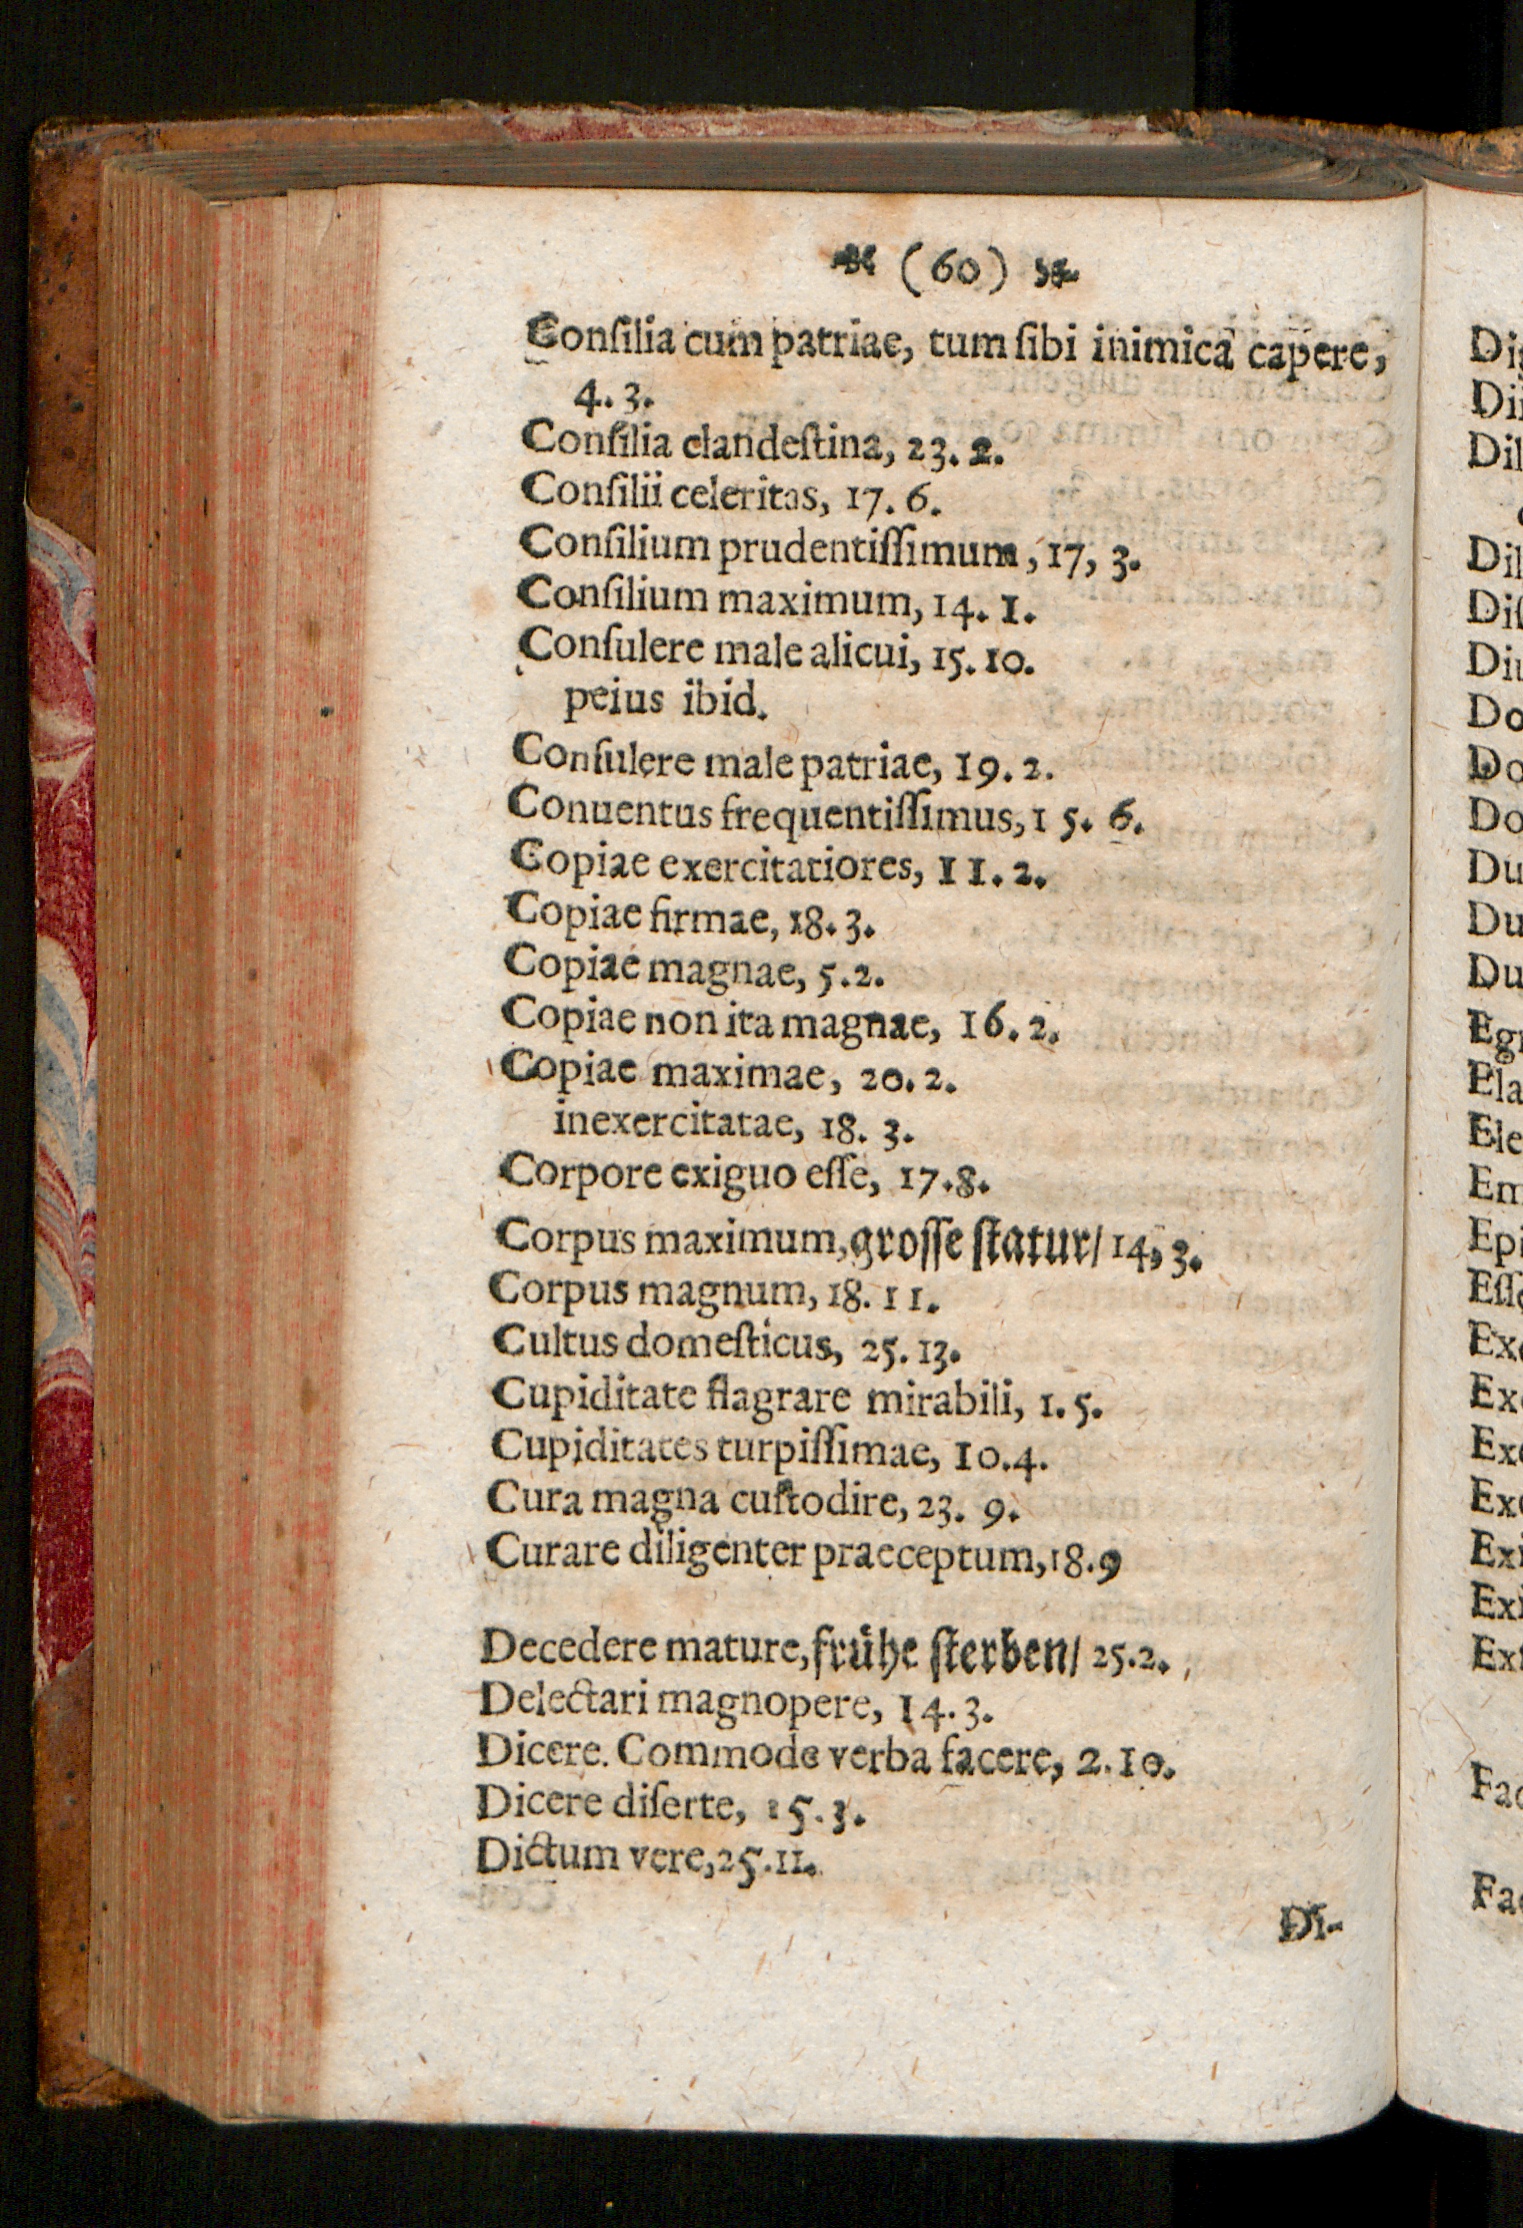 (60)
Conſilia cum patriae, tum ſibi inimica capere,
4. 3.
Conſilia clandeſtina, 23. 2.
Conſilii celeritas, 17. 6.
Conſilium prudentiſſimum, 17, 3.
Conſilium maximum, 14. 1.
Conſulere male alicui, 15. 10.
peius ibid.
Conſulere male patriae, 19. 2.
Conuentus frequentiſſimus, 15. 6.
Copiae exercitatiores, 11. 2.
Copiae firmae, 18. 3.
Copiae magnae, 5. 2.
Copiae non ita magnae, 16. 2.
Copiae maximae, 20. 2.
inexercitatae, 18. 3.
Corpore exiguo eſſe, 17. 8.
Corpus maximum, groſſe ſtatur/ 14, 3.
Corpus magnum, 18. 11.
Cultus domeſticus, 25. 13.
Cupiditate flagrare mirabili, 1. 5.
Cupiditates turpiſſimae, 10. 4.
Cura magna cuſtodire, 23. 9.
Curare diligenter praeceptum, 18. 9
Decedere mature, frühe ſterben/ 25. 2.
Delectari magnopere, 14. 3.
Dicere. Commode verba facere, 2. 10.
Dicere diſerte, 15. 3.
Dictum vere, 25. 11.
Di-
Di
Dil
Dil
Diſ
Do
Do
Do
Du
Du
Du
Eg
Ela
Ele
Em
Epi
Eſſ
Ex
Ex
Ex
Ex
Exi
Exi
Ex
Fac
Fac